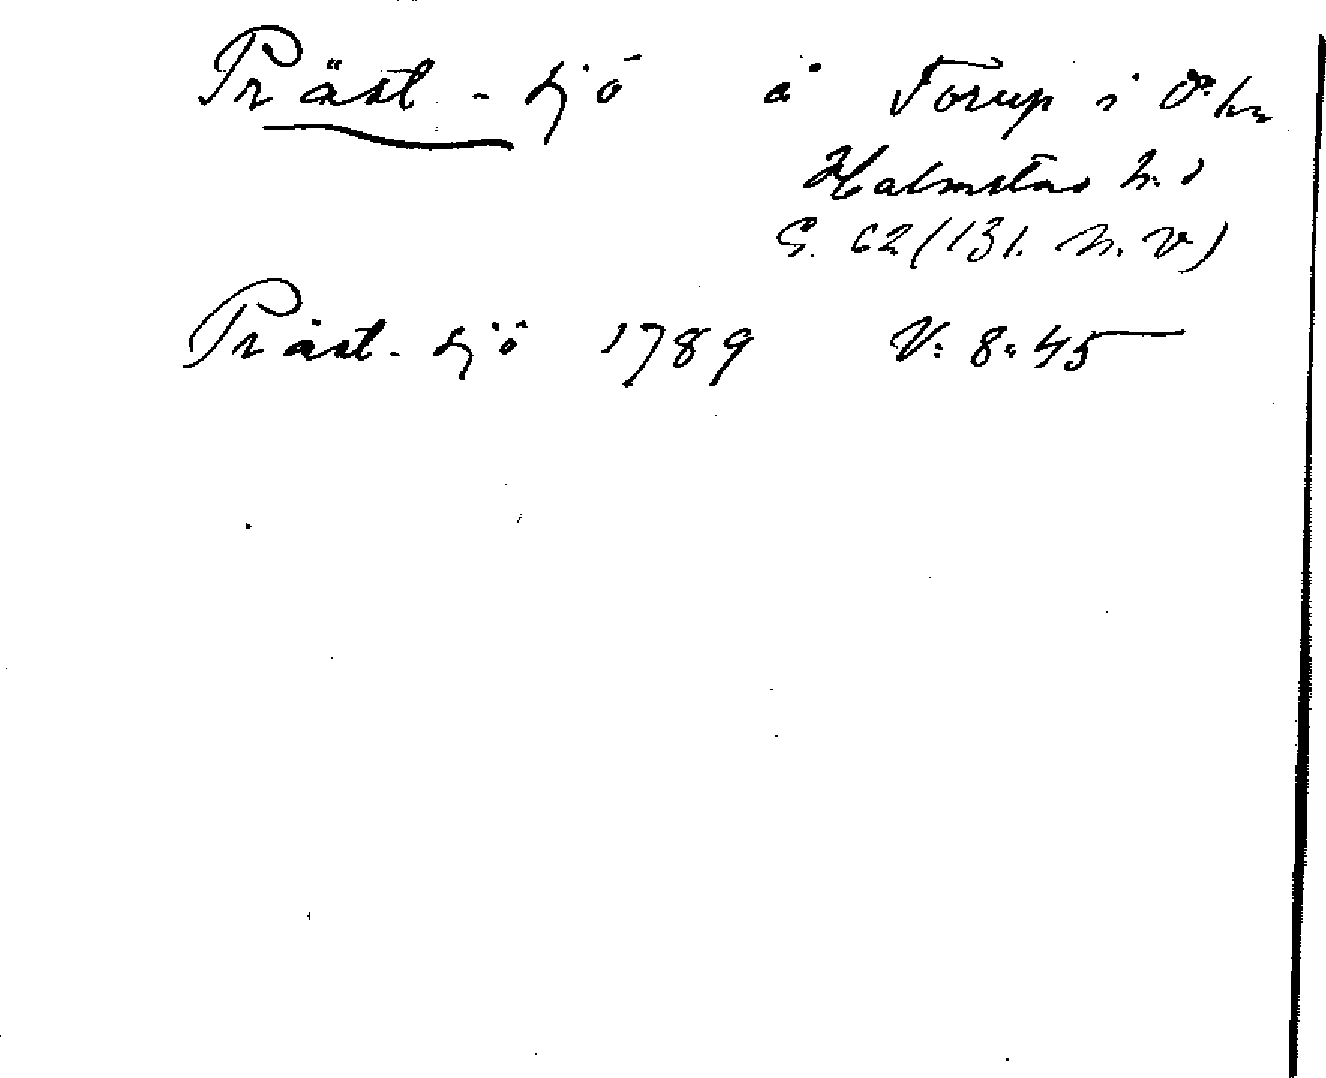 Präst-sjö å Torup i
Halmstad h.d
G. 62 (131. n. v.)
Präst-sjö 1789 V: 8: 45